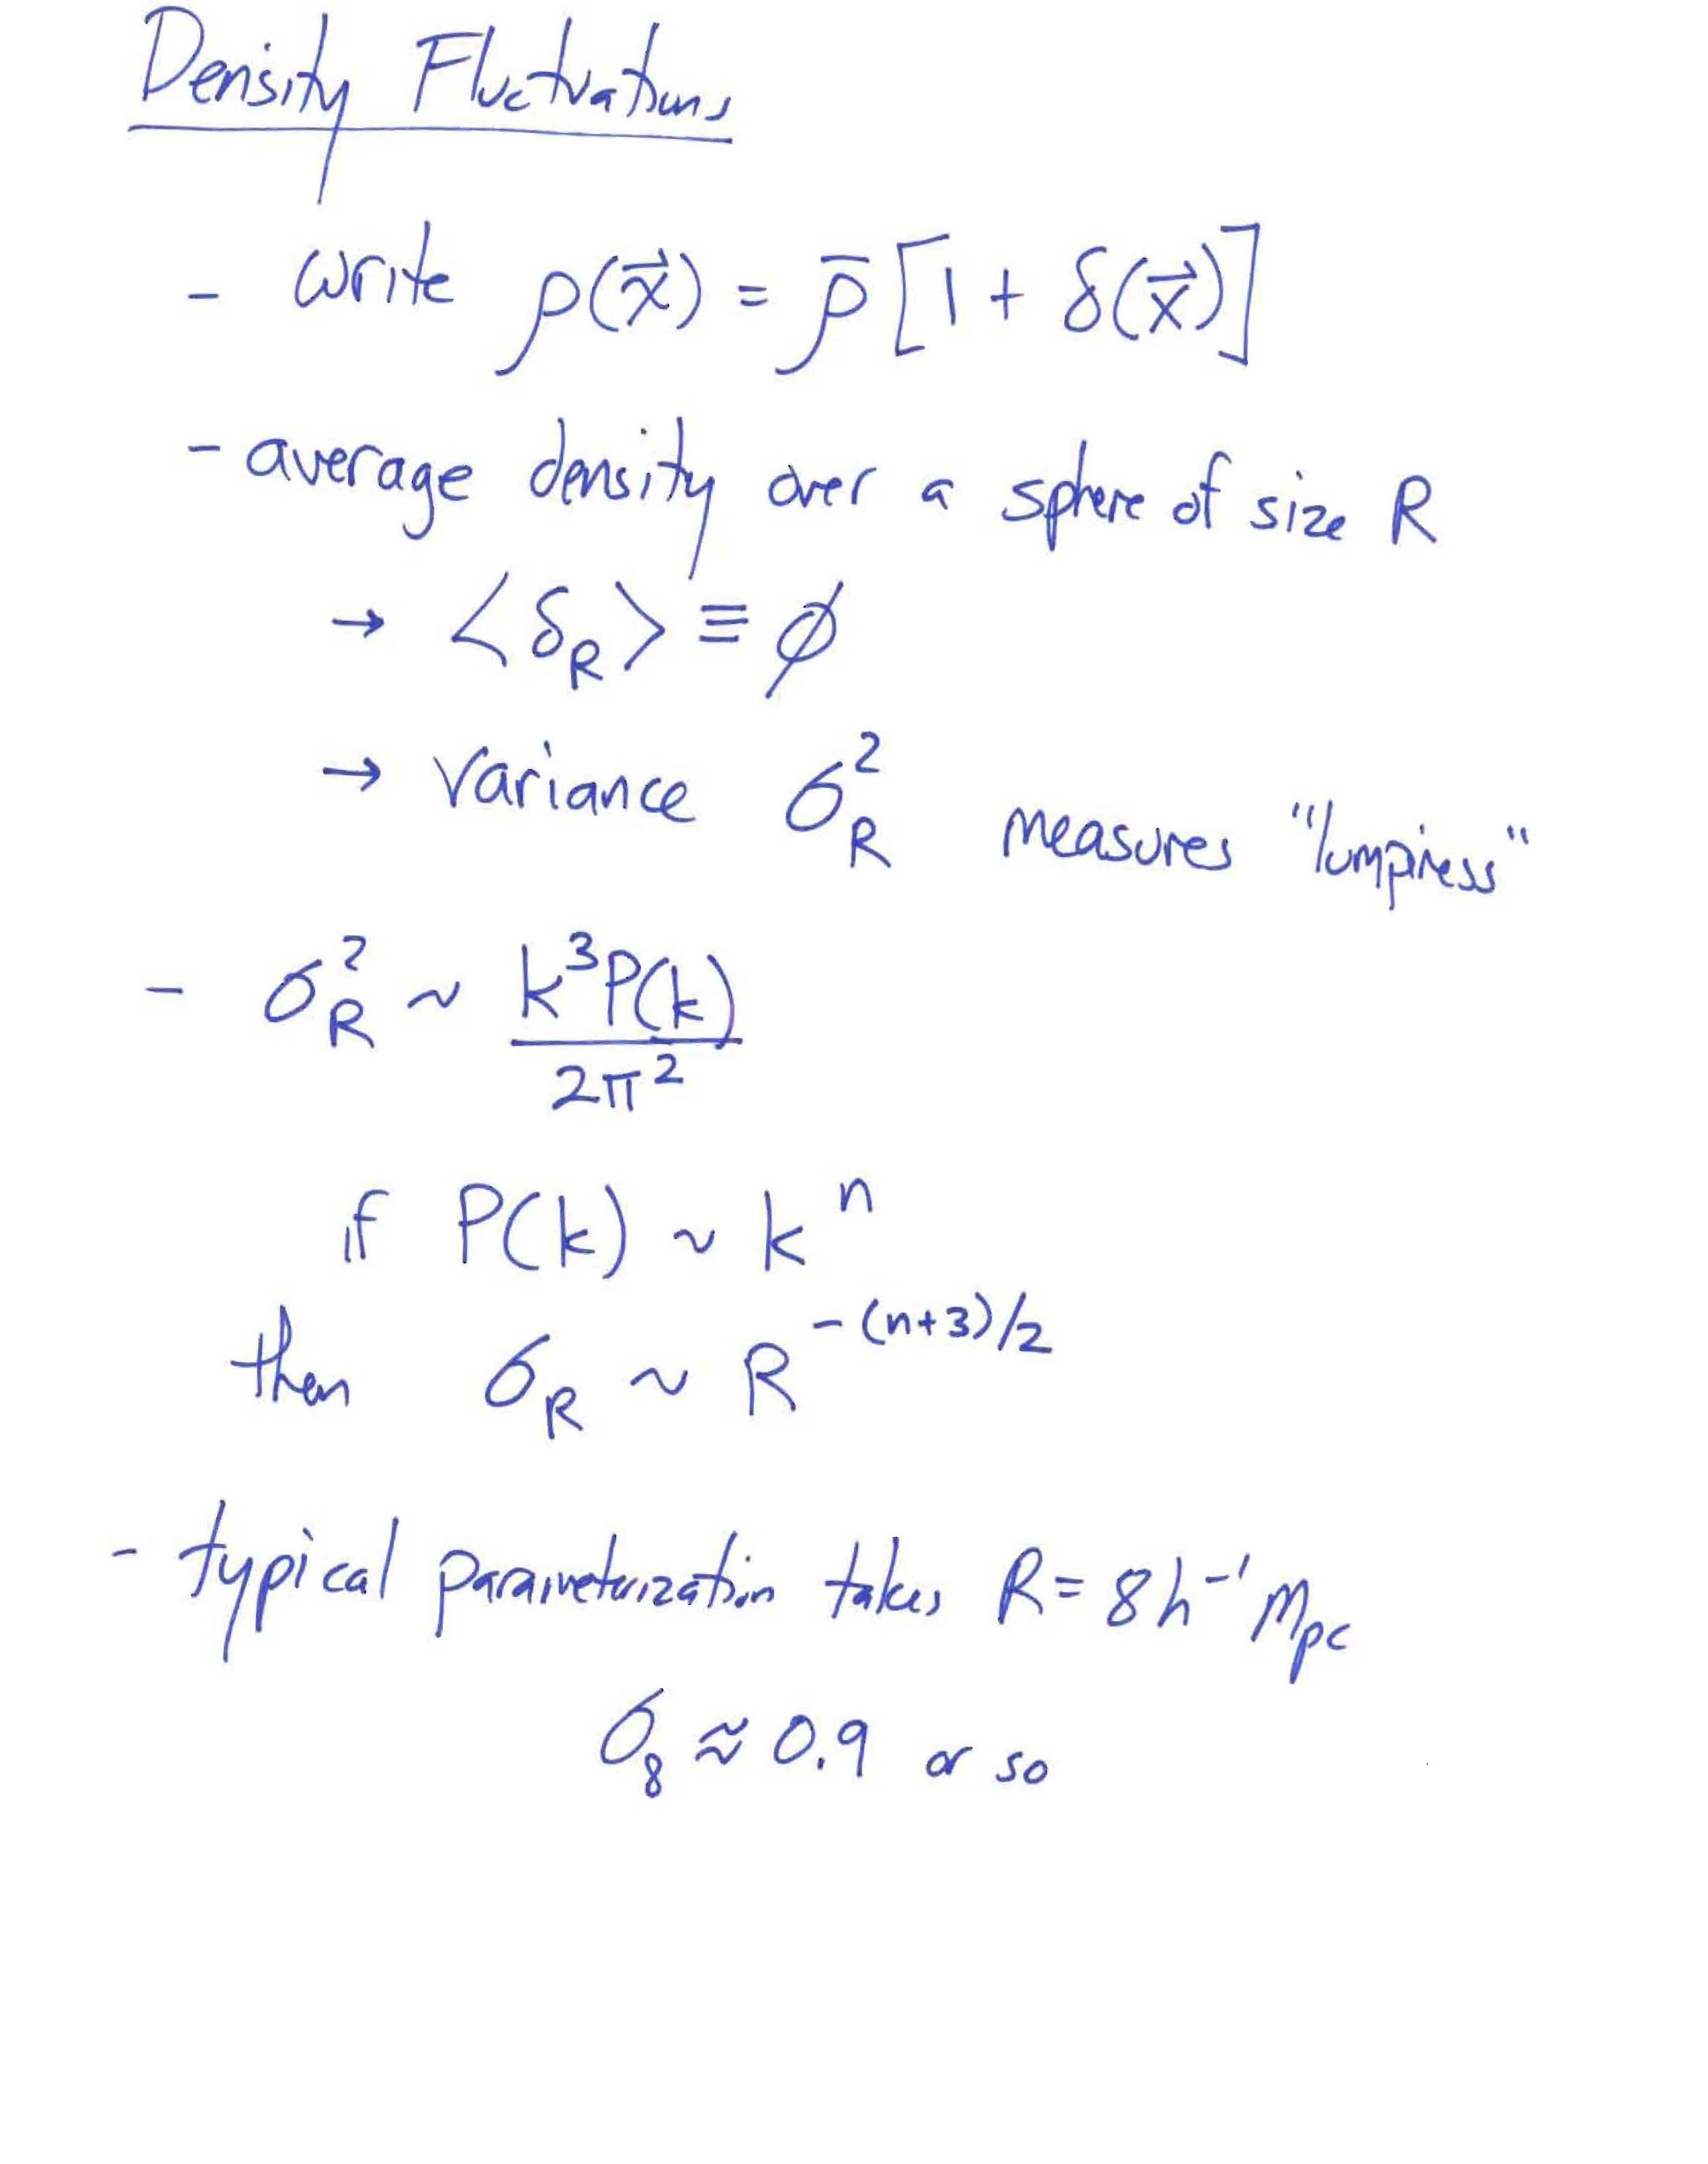 Density Fluctuations
- write ρ(x⃗) = ρ̄ [1 + δ(x⃗)]
- average density over a sphere of size R
→ <δ_R> ≡ ∅
→ variance σ_R^2 measures "lumpiness"
- σ_R^2 ~ k^3P(k) / 2π^2
if P(k) ~ k^n
then σ_R ~ R^-(n+3)/2
- typical parameterization takes R = 8h^-1 Mpc
σ_8 ≈ 0.9 or so